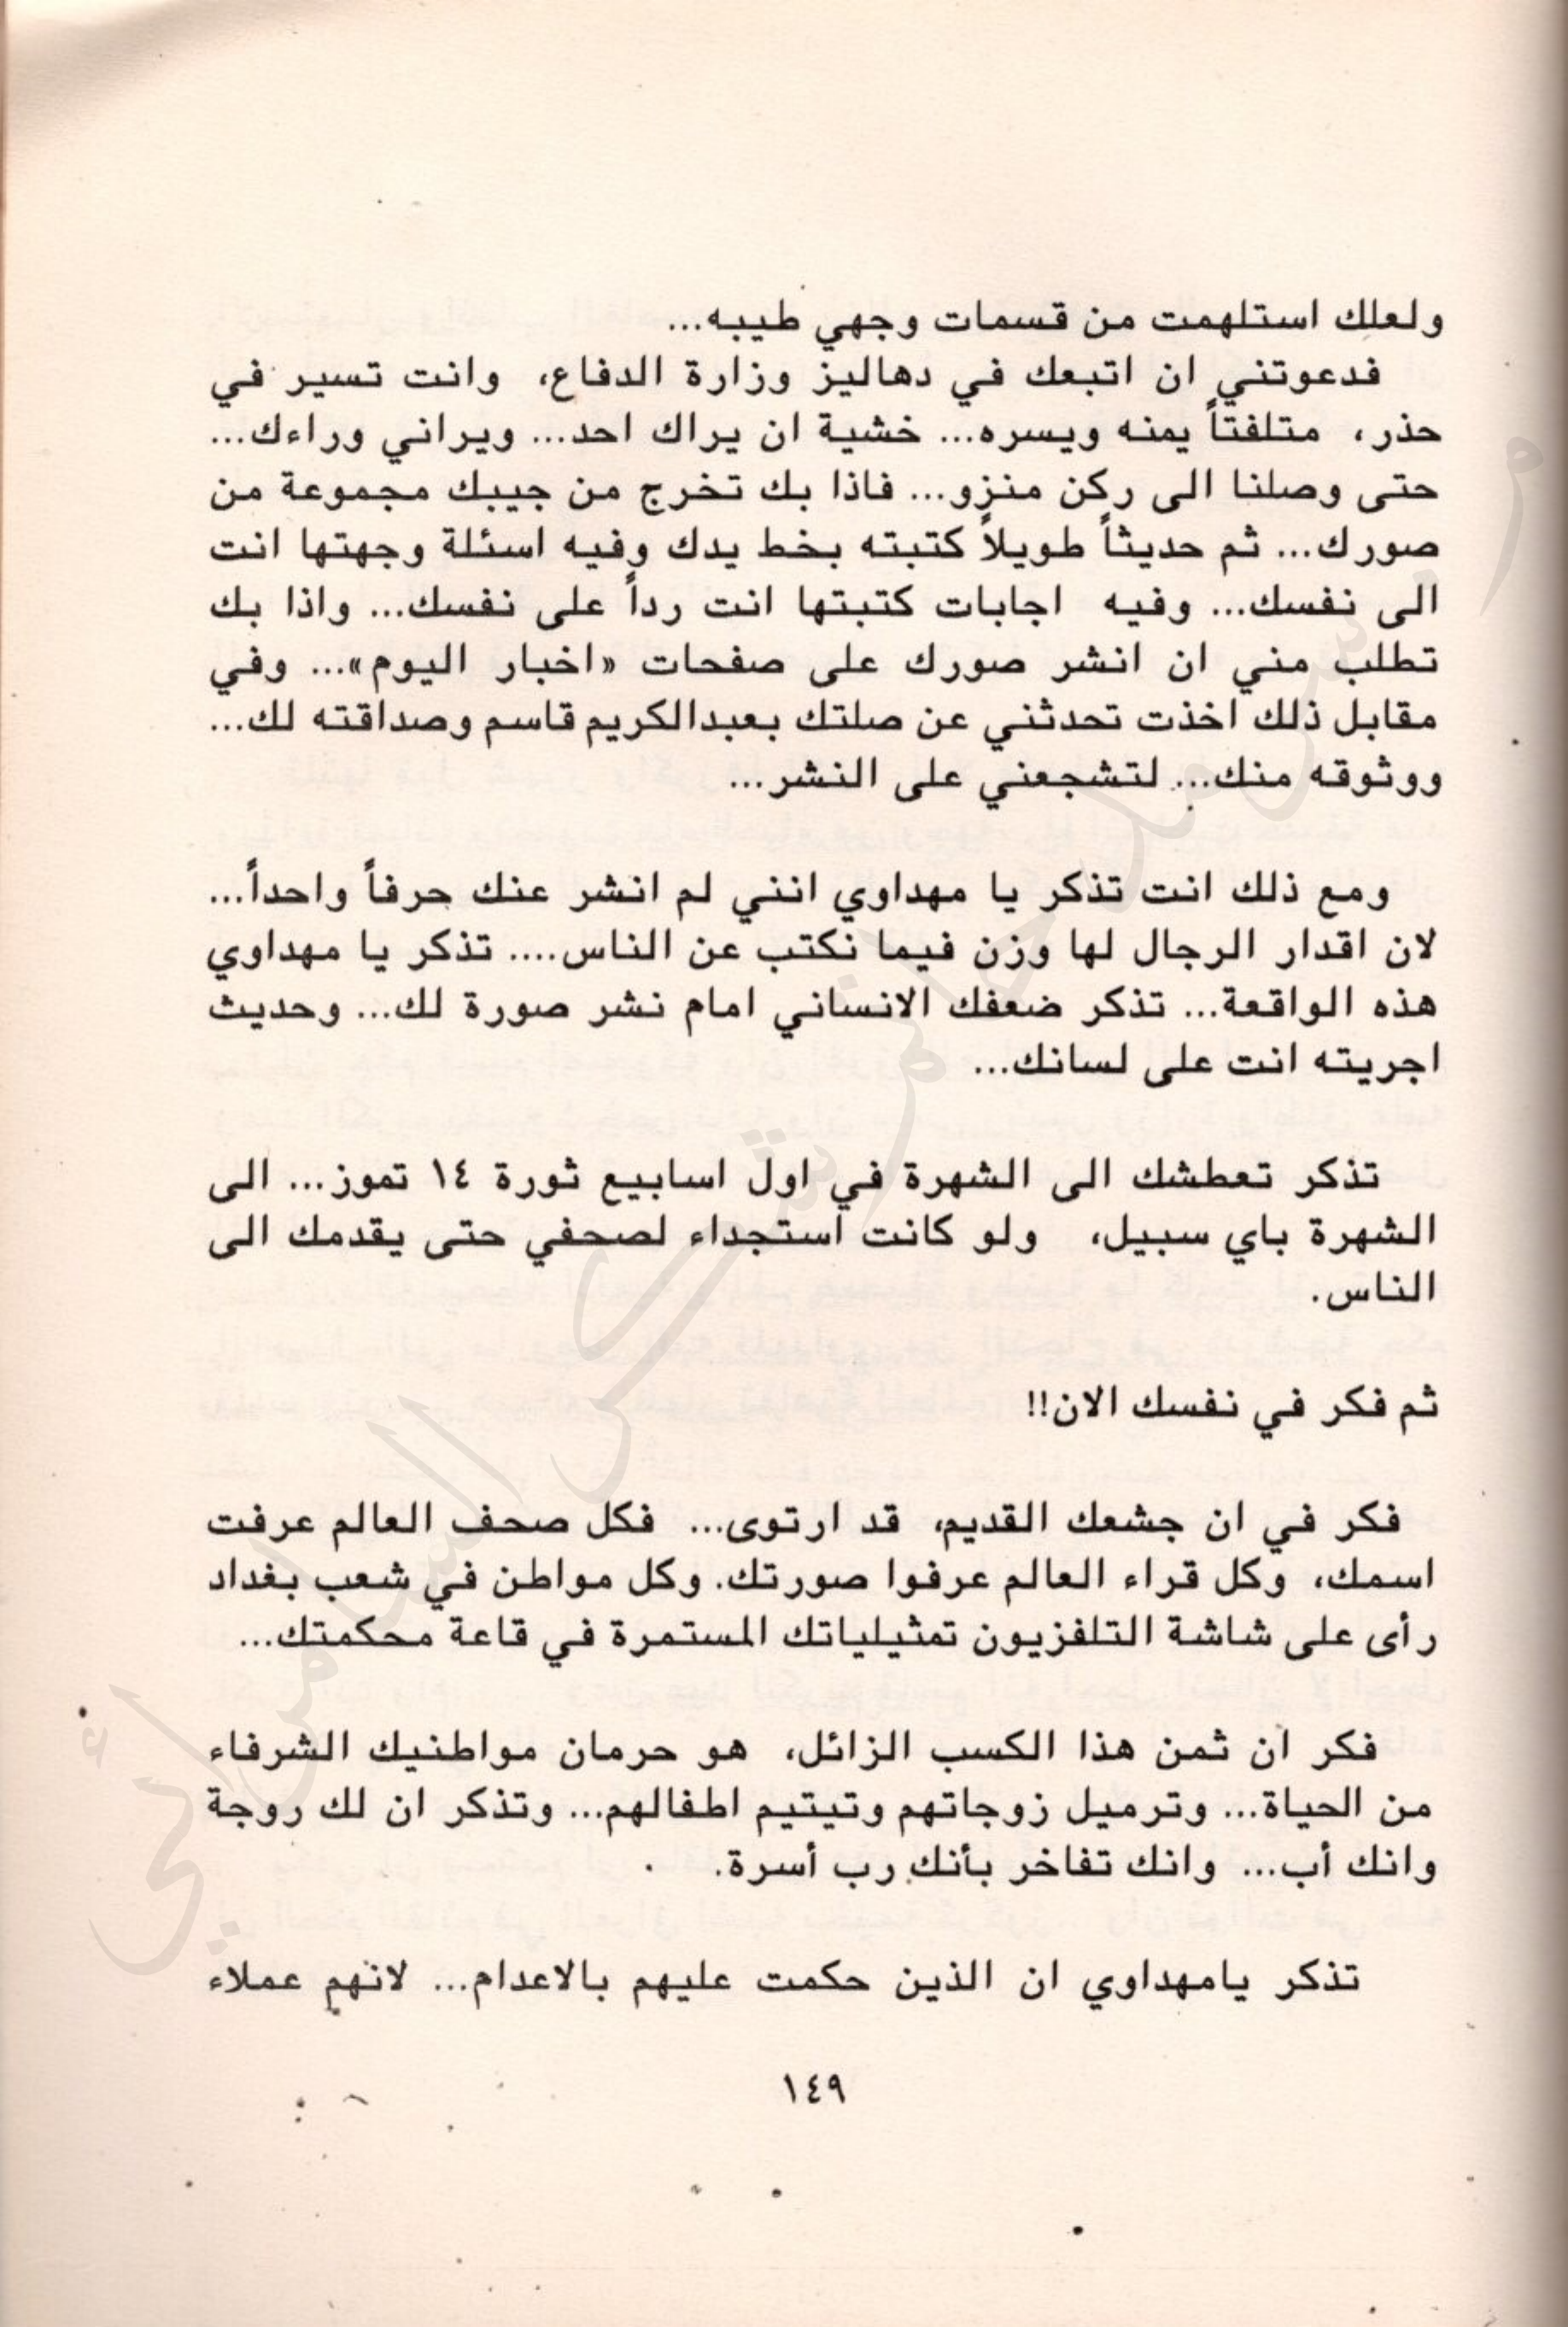 ولعلك استلهمت من قسمات وجهي طيبه...
فدعوتني ان اتبعك في دهاليز وزارة الدفاع، وانت تسير في
حذر، متلفتاً يمنه ويسره... خشية ان يراك احد... ويراني وراءك...
حتى وصلنا الى ركن منزو... فاذا بك تخرج من جيبك مجموعة من
صورك... ثم حديثاً طويلاً كتبته بخط يدك وفيه اسئلة وجهتها انت
الى نفسك... وفيه اجابات كتبتها انت رداً على نفسك... واذا بك
تطلب مني ان انشر صورك على صفحات «اخبار اليوم»... وفي
مقابل ذلك اخذت تحدثني عن صلتك بعبدالكريم قاسم وصداقته لك...
ووثوقه منك... لتشجعني على النشر...
ومع ذلك انت تذكر يا مهداوي انني لم انشر عنك حرفاً واحداً...
لان اقدار الرجال لها وزن فيما نكتب عن الناس.... تذكر يا مهداوي
هذه الواقعة... تذكر ضعفك الانساني امام نشر صورة لك... وحديث
اجريته انت على لسانك...
تذكر تعطشك الى الشهرة في اول اسابيع ثورة ١٤ تموز... الى
الشهرة باي سبيل، ولو كانت استجداء لصحفي حتى يقدمك الى
الناس.
ثم فكر في نفسك الان!!
فكر في ان جشعك القديم، قد ارتوى... فكل صحف العالم عرفت
اسمك، وكل قراء العالم عرفوا صورتك. وكل مواطن في شعب بغداد
رأى على شاشة التلفزيون تمثيلياتك المستمرة في قاعة محكمتك...
فكر ان ثمن هذا الكسب الزائل، هو حرمان مواطنيك الشرفاء
من الحياة... وترميل زوجاتهم وتيتيم اطفالهم... وتذكر ان لك روجة
وانك أب... وانك تفاخر بأنك رب أسرة.
تذكر يامهداوي ان الذين حكمت عليهم بالاعدام... لانهم عملاء
١٤٩